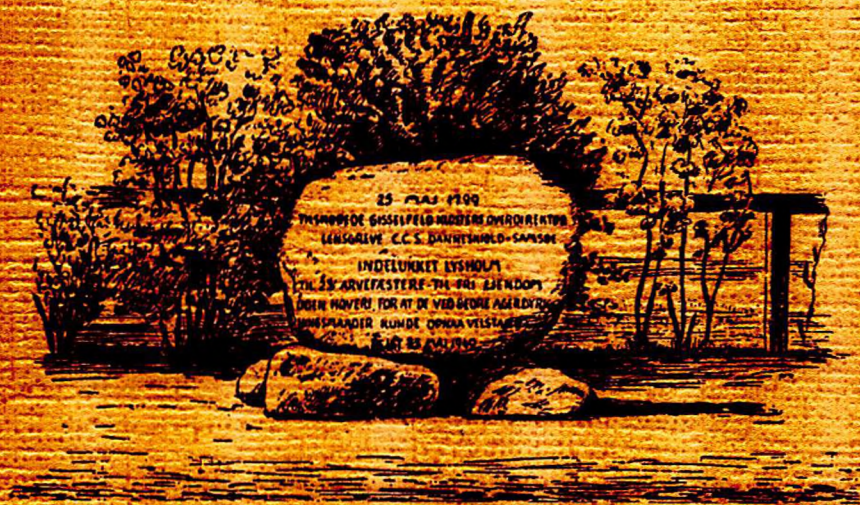 25 MAJ 1799
TILSKØDEDE GISSELFELD KLOSTERS OVERDIREKTØR
LENSGREVE C.C.S. DANNESKJOLD-SAMSØE
INDELUKKET LYSHOLM
TIL ARVEFÆSTERE TIL FRI EJENDOM
UDEN HOVERI, FOR AT DE VED BEDRE AGERDYRK
NINGSMAADER KUNDE OPNAA VELSTAND
MAJ